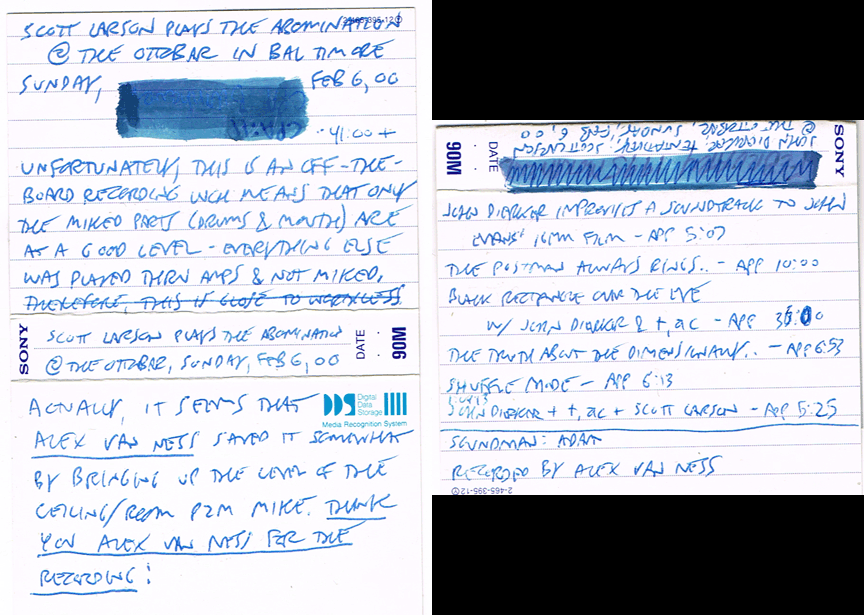 SCOTT LARSON PLAYS THE ABOMINATION
@ THE OTTOBAR IN BALTIMORE
SUNDAY, FEB 6, 00
41:00 +
UNFORTUNATELY, THIS IS AN OFF-THE-
BOARD RECORDING WCH MEANS THAT ONLY
THE MIKED PARTS (DRUMS & MOUTH) ARE
AT A GOOD LEVEL - EVERYTHING ELSE
WAS PLAYED THRU AMPS & NOT MIKED,
THEREFORE, THIS IS CLOSE TO WORTHLESS.
SONY
SCOTT LARSON PLAYS THE ABOMINATION
@ THE OTTOBAR, SUNDAY, FEB 6, 00
DATE
90M
ACTUALLY, IT SEEMS THAT
DDS Digital Data Storage
Media Recognition System
ALEX VAN NESS SAVED IT SOMEWHAT
BY BRINGING UP THE LEVEL OF THE
CEILING/ROOM PZM MIKE. THANK
YOU ALEX VAN NESS FOR THE
RECORDING!
90M
DATE
JOHN DIERKER; TENTATIVELY; SCOTT LARSON
@ THE OTTOBAR, SUNDAY, FEB 6, 00
SONY
JOHN DIERKER IMPROVISES A SOUNDTRACK TO JOHN
EVANS' 16MM FILM - APP 5:07
THE POSTMAN ALWAYS RINGS.. - APP 10:00
BLACK RECTANGLE OVER THE EYE
W/ JOHN DIERKER & t, ac - APP
THE TRUTH ABOUT THE DIMENSIONALITY.. - APP 6:53
SHUFFLE MODE - APP 6:13
JOHN DIERKER + t, ac + SCOTT LARSON - APP 5:25
SOUNDMAN: ADAM
RECORDED BY ALEX VAN NESS
2-465-395-12①